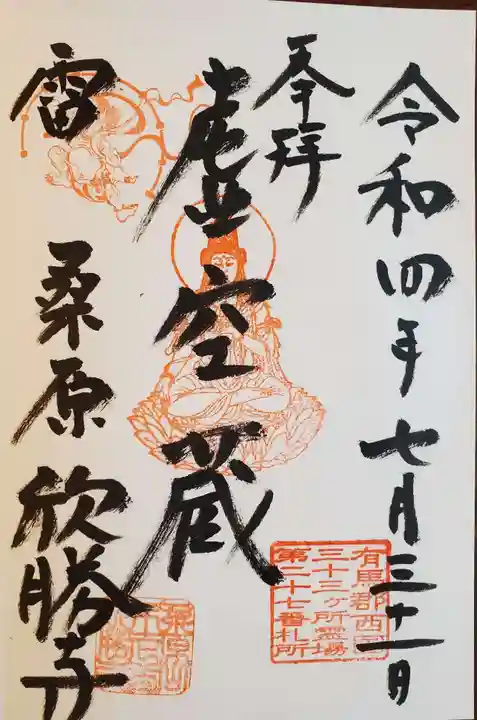 令和四年七月三十一日
奉拝
虚空蔵
雷 桑原 欣勝寺
有馬郡西国
三十三ヶ所霊場
第二十七番札所